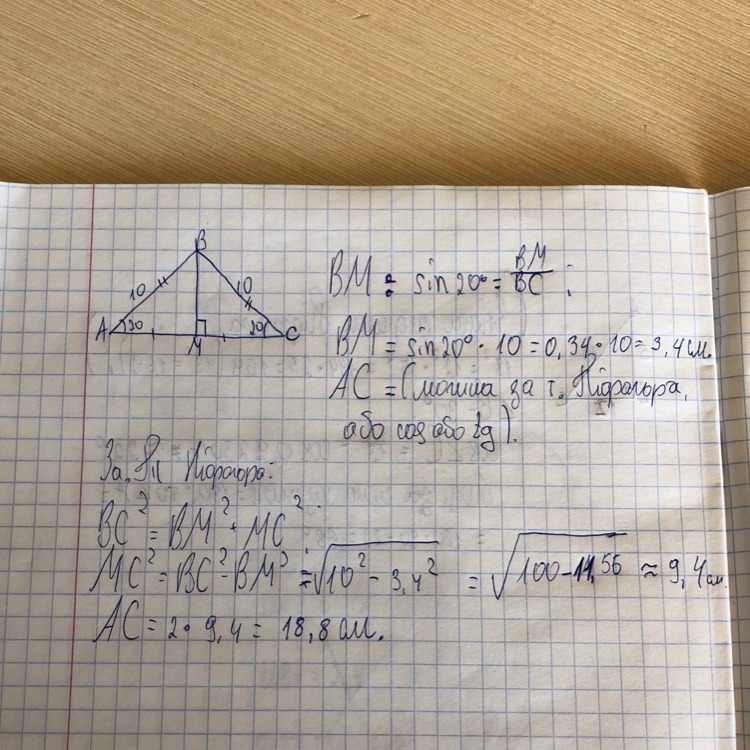 B
10
10
A
20
20
C
M
BM : sin 20° = BM/BC ;
BM = sin 20° · 10 = 0,34 · 10 = 3,4 см.
AC = (можна за т. Піфагора,
або cos або tg).
За Піфагора:
BC² = BM² + MC²
MC² = BC² - BM² = √10² - 3,4² = √100 - 11,56 ≈ 9,4 см.
AC = 2 · 9,4 = 18,8 см.